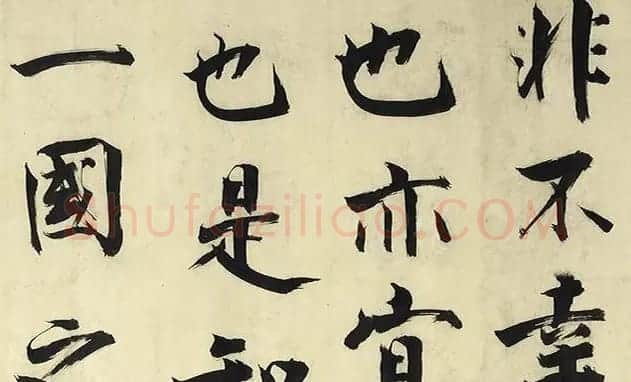 非不幸
也亦宜
也是知
一國之
Shufaziliao.COM